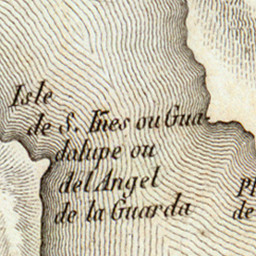 Isle
de S. Iñes ou Gua-
dalupe ou
del Angel
de la Guarda
Pl
de